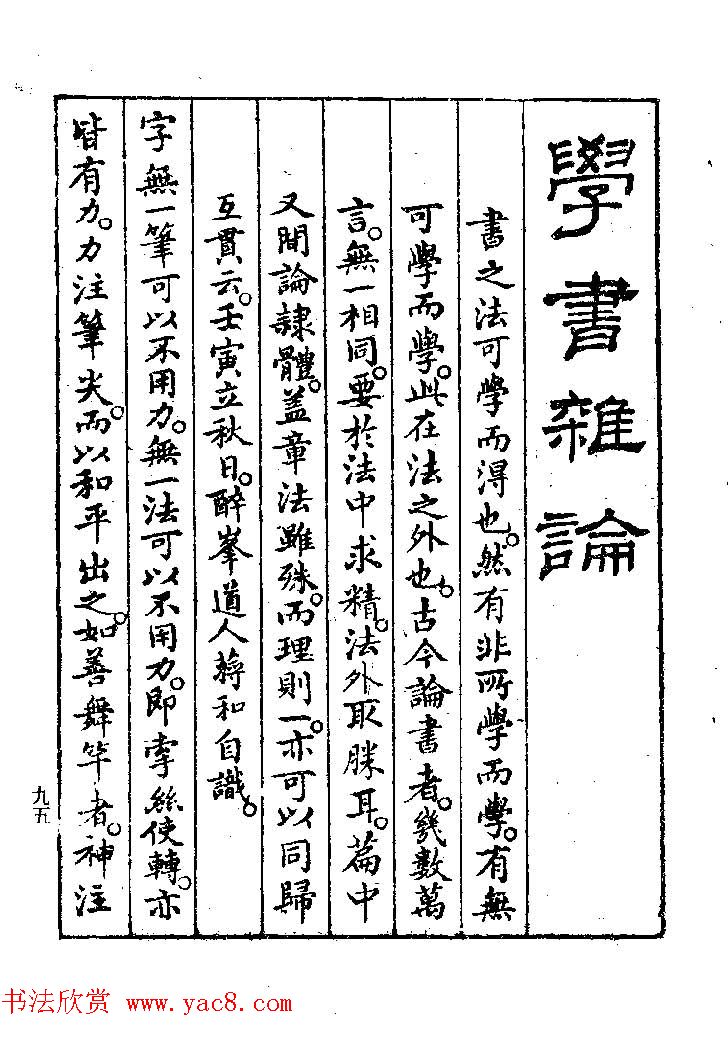 學書雜論
書之法可學而得也。然有非所學而學。有無
可學而學。此在法之外也。古今論書者。幾數萬
言。無一相同。要於法中求精。法外取勝耳。篇中
又間論隸體。盖章法雖殊。而理則一。亦可以同歸
互貫云。壬寅立秋日。醉峯道人蔣和自識。
字無一筆可以不用力。無一法可以不用力。即牽絲使轉。亦
皆有力。力注筆尖。而以和平出之。如善舞竿者。神注
九五
书法欣赏 www.yac8.com